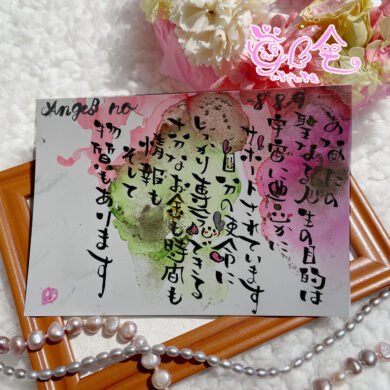 Angel no
889
あなたの
聖なる人生の目的は
宇宙に豊かに
サポートされています
自分の使命に
しっかり専念できる
十分なお金も時間も
情報も
そして
物質もあります